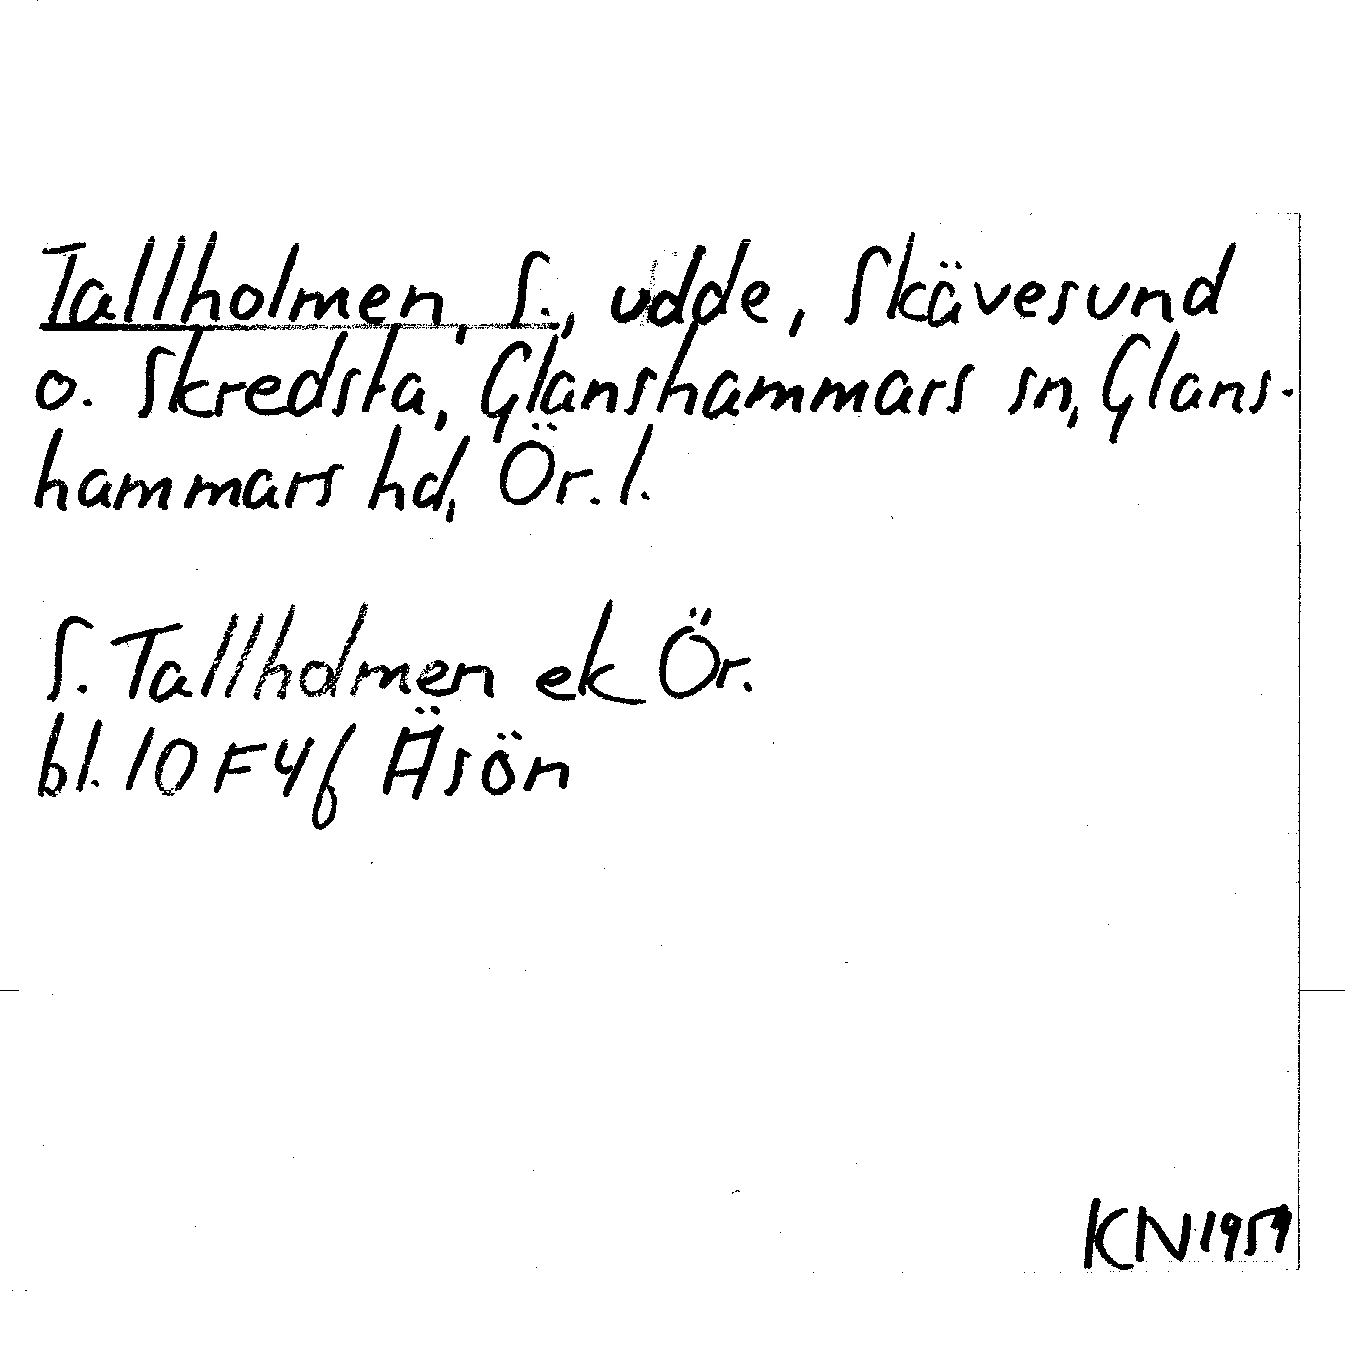 Tallholmen, S., udde, Skävesund
o. Skredsta, Glanshammars sn, Glans-
hammars hd, Ör. l.
S. Tallholmen ek Ör.
bl. 10 F 4 f Äsön
KN 1959